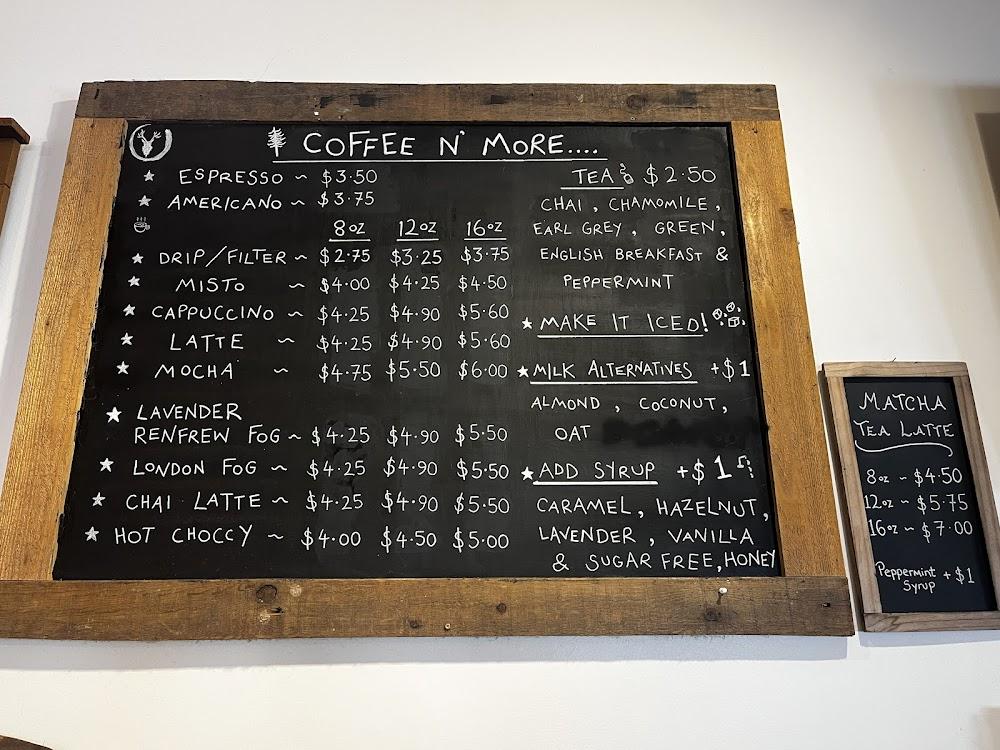 COFFEE N' MORE....
★ ESPRESSO ~ $3.50
★ AMERICANO ~ $3.75
8oz 12oz 16oz
★ DRIP/FILTER ~ $2.75 $3.25 $3.75
★ MISTO ~ $4.00 $4.25 $4.50
★ CAPPUCCINO ~ $4.25 $4.90 $5.60
★ LATTE ~ $4.25 $4.90 $5.60
★ MOCHA ~ $4.75 $5.50 $6.00
★ LAVENDER
RENFREW FOG ~ $4.25 $4.90 $5.50
★ LONDON FOG ~ $4.25 $4.90 $5.50
★ CHAI LATTE ~ $4.25 $4.90 $5.50
★ HOT CHOCCY ~ $4.00 $4.50 $5.00
TEA $2.50
CHAI, CHAMOMILE,
EARL GREY, GREEN,
ENGLISH BREAKFAST &
PEPPERMINT
★ MAKE IT ICED!
★ MILK ALTERNATIVES +$1
ALMOND, COCONUT,
OAT
★ ADD SYRUP +$1
CARAMEL, HAZELNUT,
LAVENDER, VANILLA
& SUGAR FREE, HONEY
MATCHA
TEA LATTE
8oz ~ $4.50
12oz ~ $5.75
16oz ~ $7.00
Peppermint
Syrup + $1